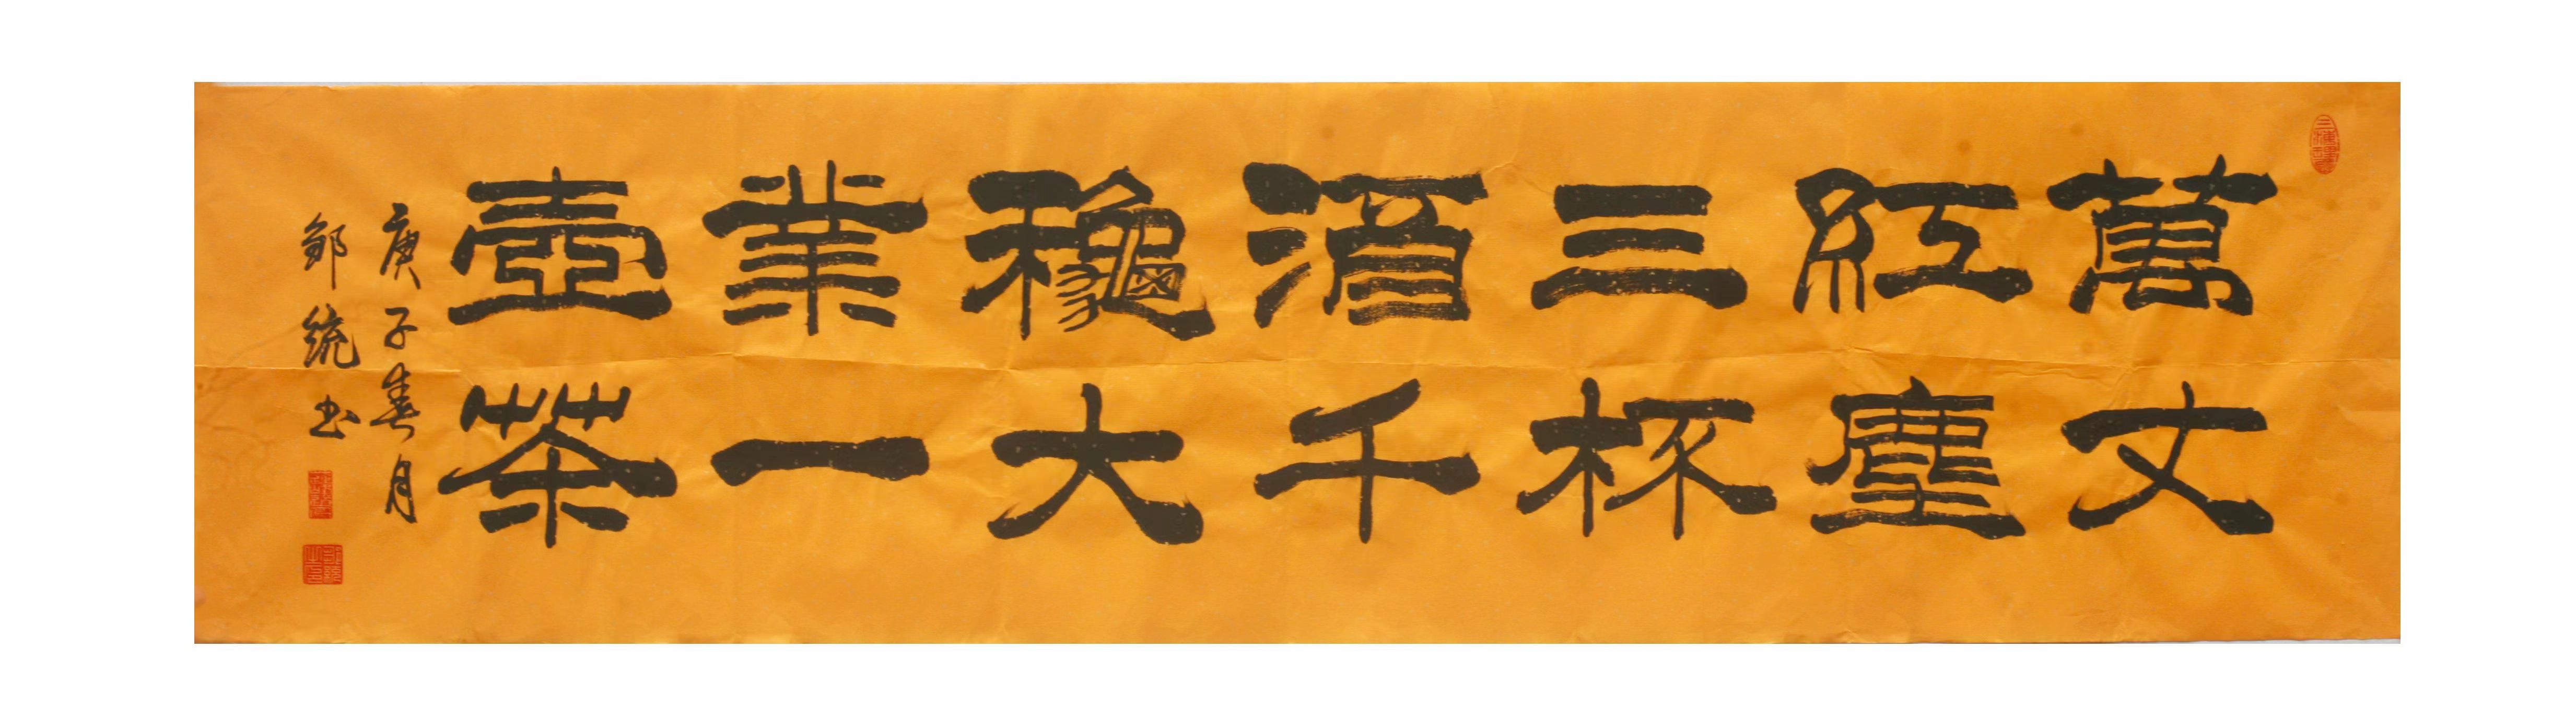 萬丈
紅塵
三杯
酒千
穐大
業一
壺茶
庚子春月
鄒統书